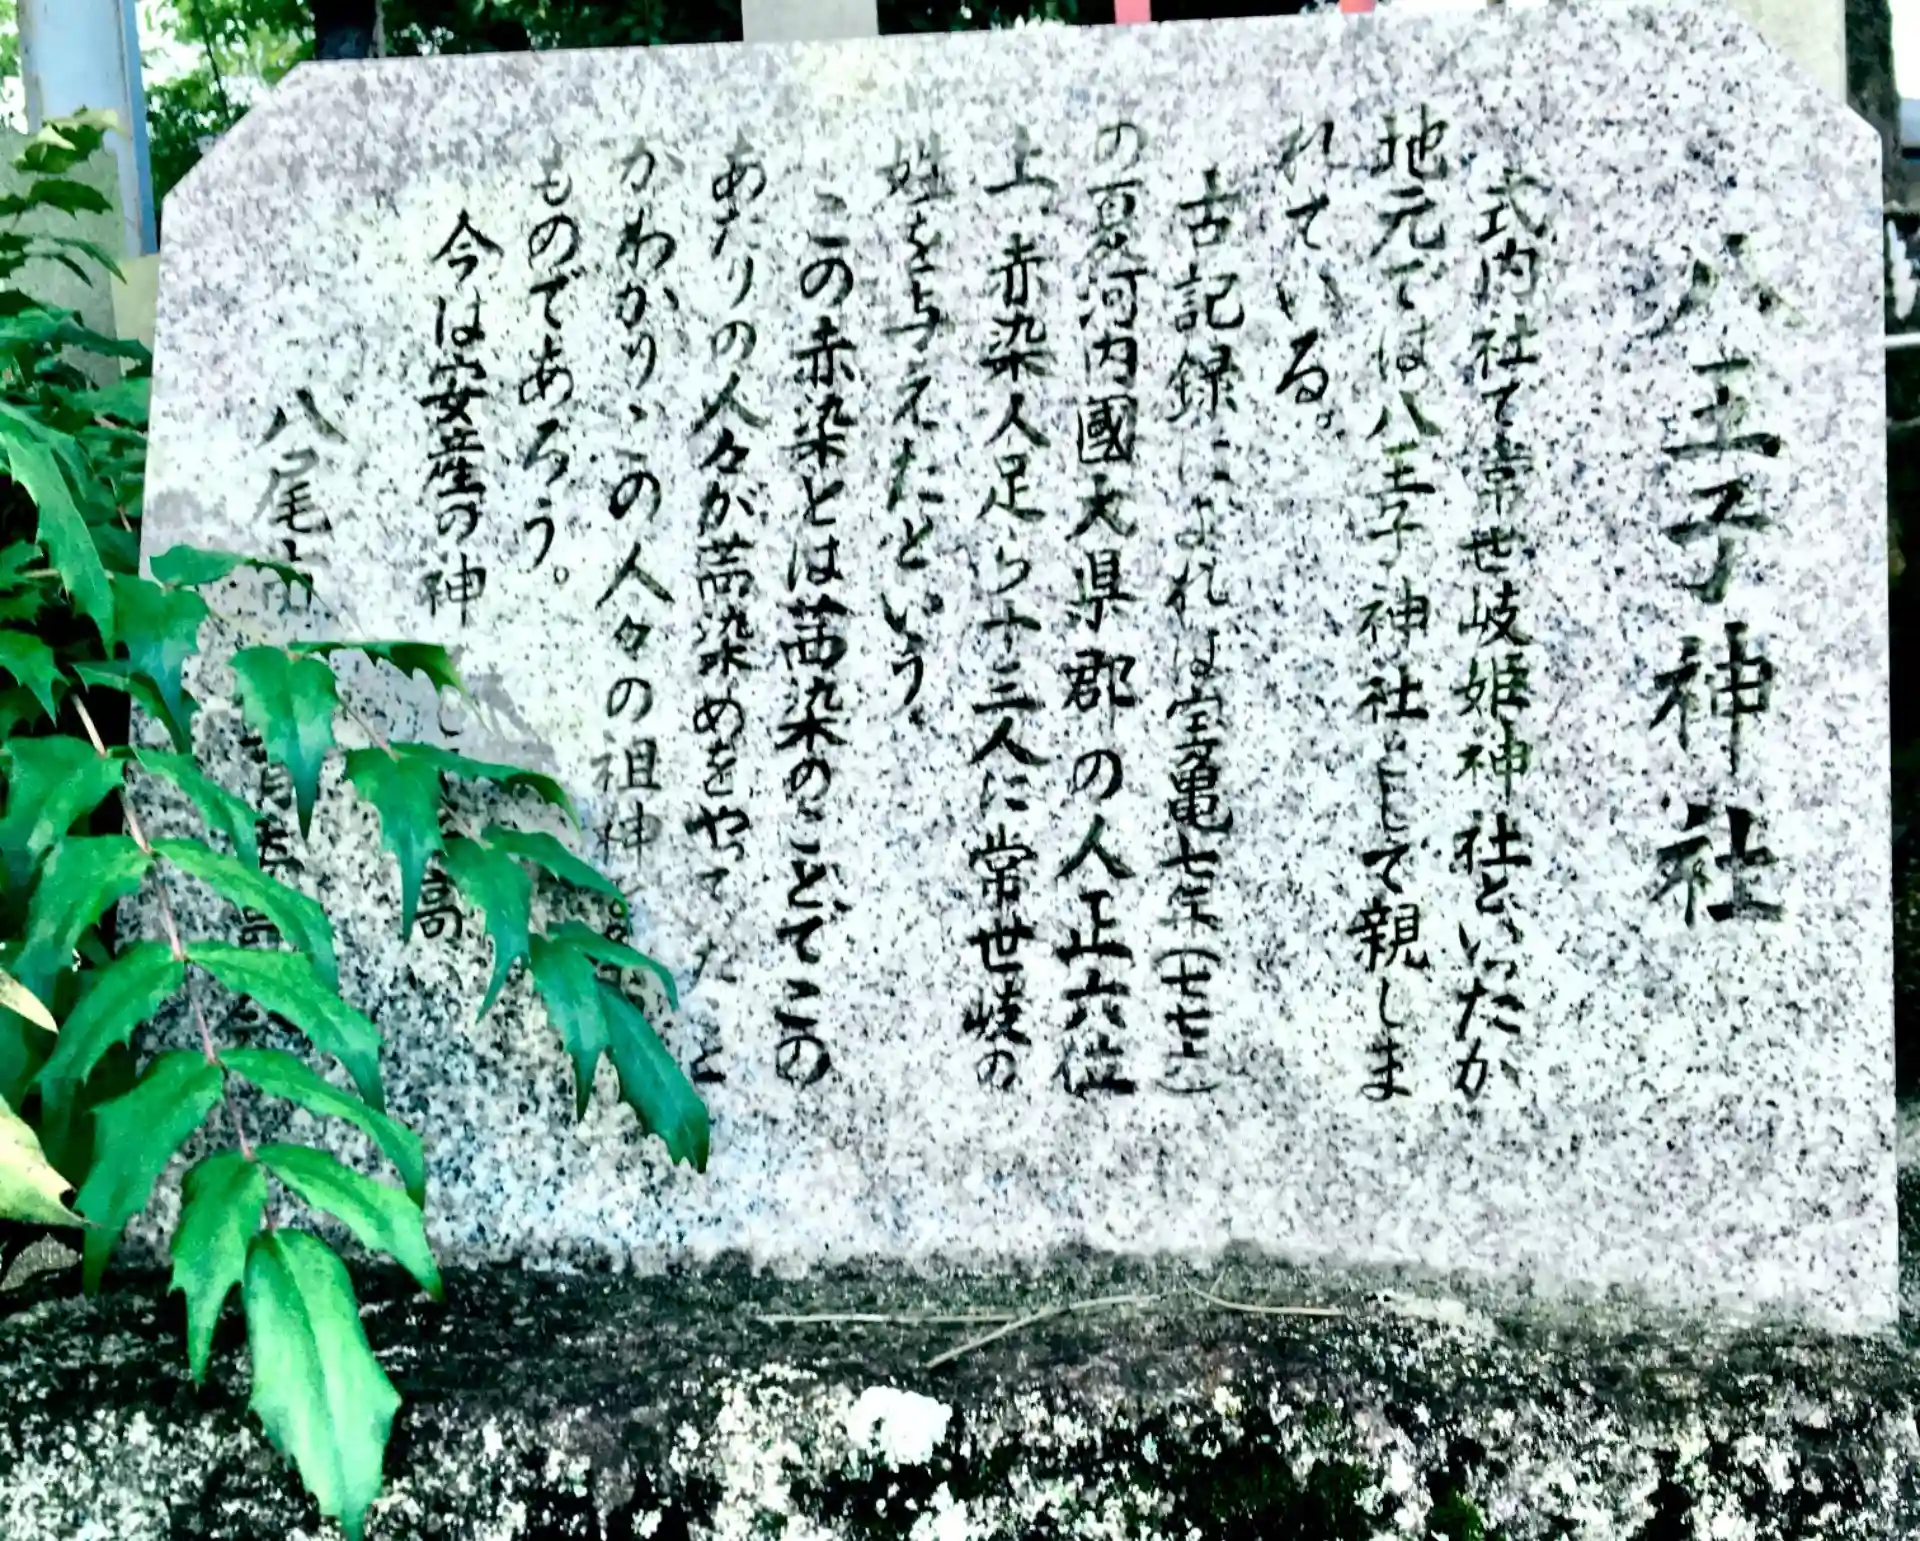 八王子神社
式内社で常世岐姫神社といったが
地元では八王子神社として親しま
れている。
古記録によれば宝亀七年(七七六)
の夏河内國大県郡の人正六位
上、赤染人足ら十三人に常世岐の
姓を与えたという。
この赤染とは茜染のことでこの
あたりの人々が茜染めをやってたこと
がわかりこの人々の祖神
ものであろう。
今は安産の神 高
八尾市